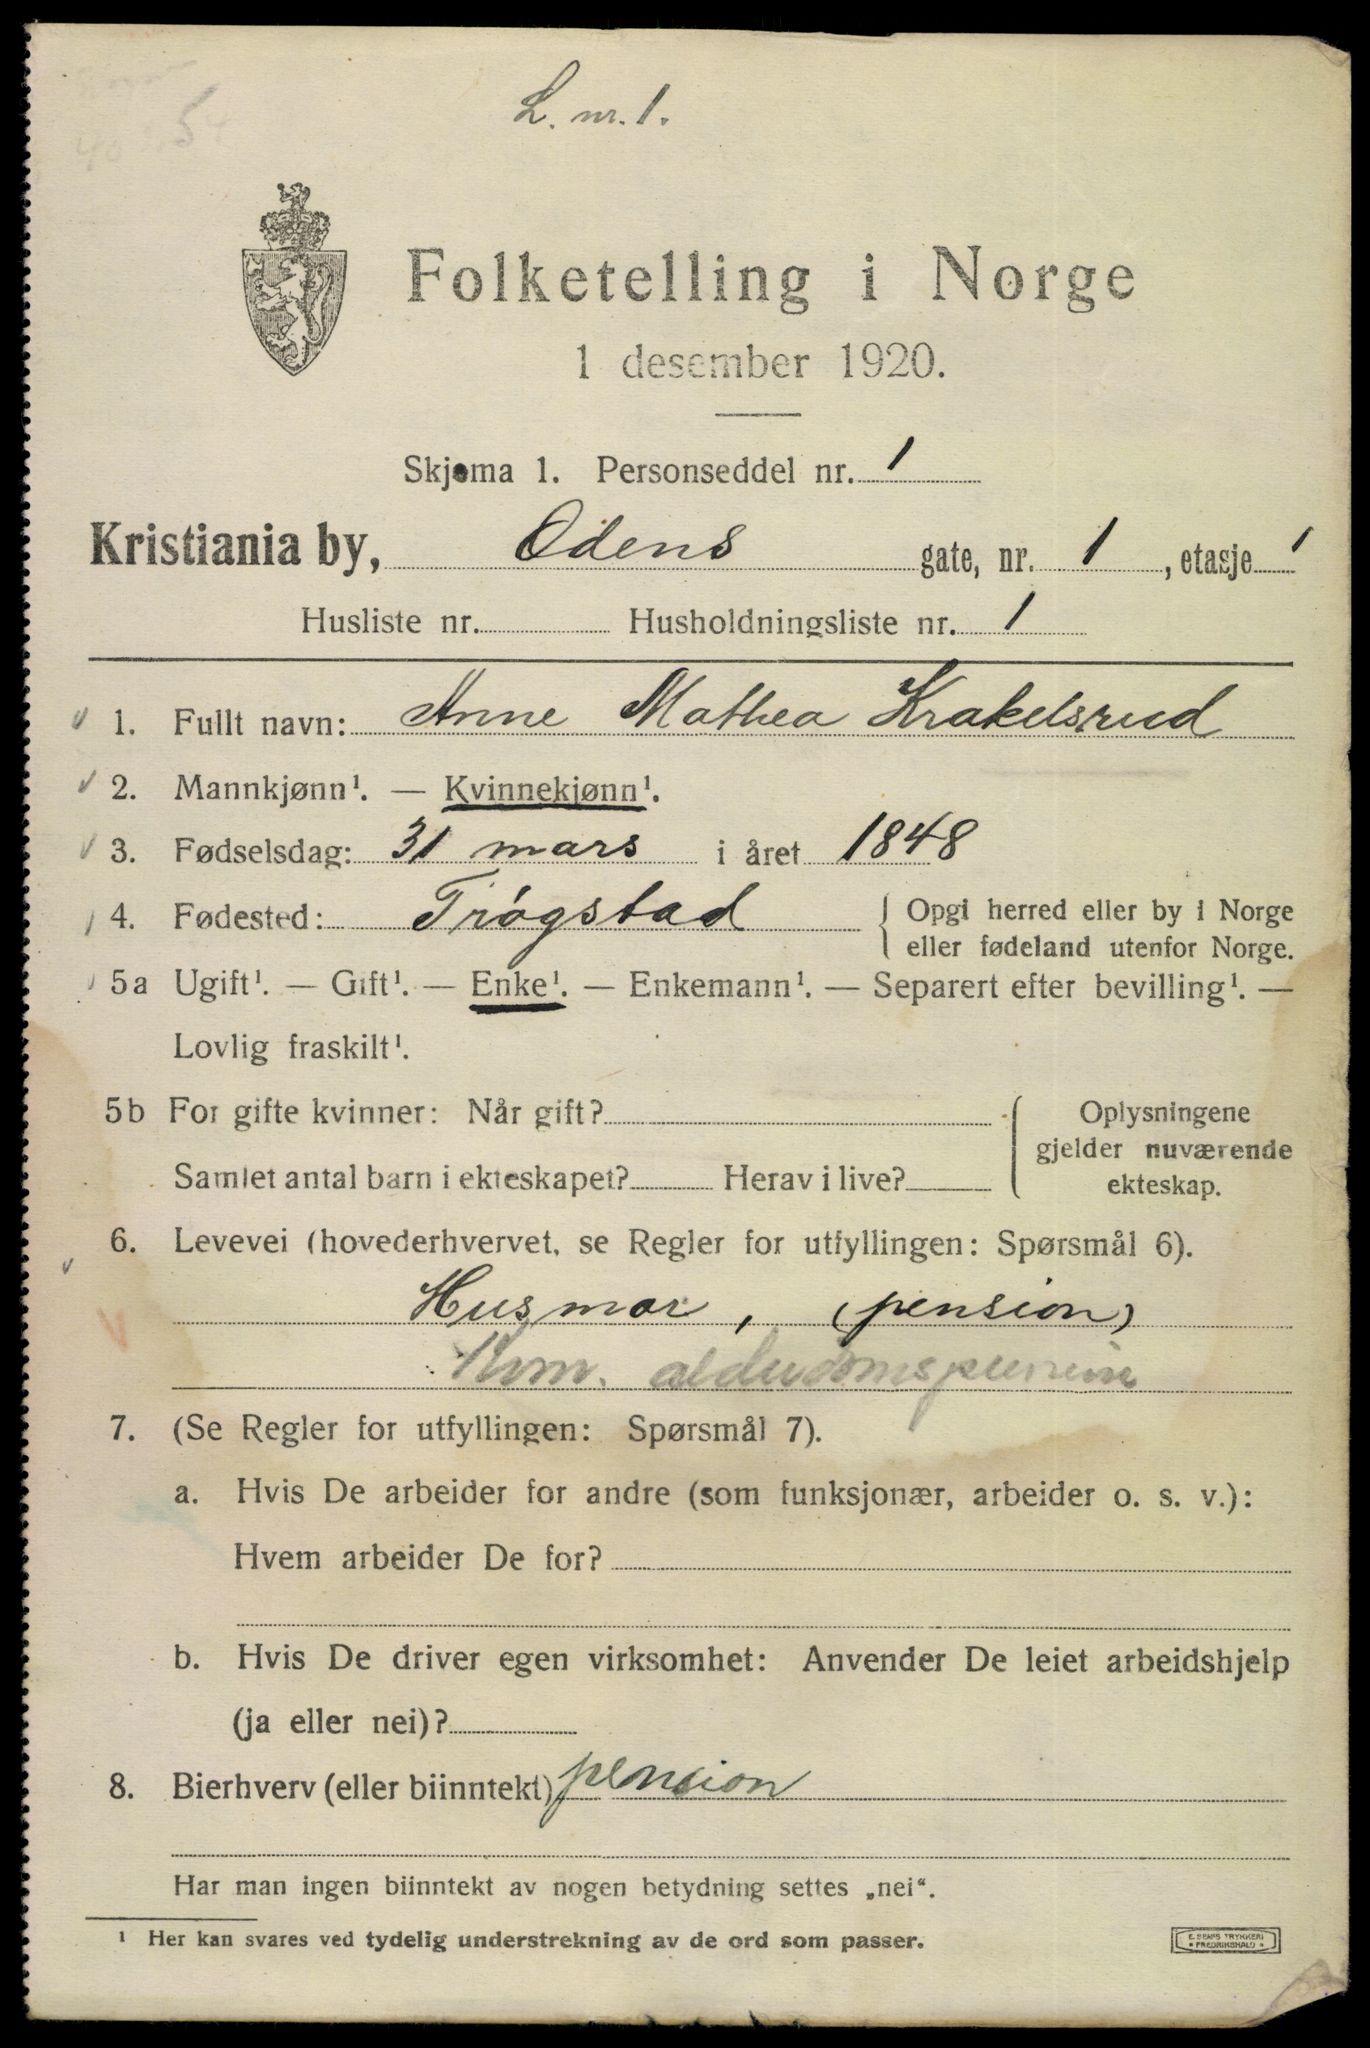 L. nr. 1.
54
40
Folketelling i Norge
1 desember 1920.
Skjema 1. Personseddel nr. 1
Kristiania by, Odens gate, nr. 1, etasje 1
Husliste nr. Husholdningsliste nr. 1
1. Fullt navn: Anne Mathea Krakelsrud
2. Mannkjønn¹. — Kvinnekjønn¹.
3. Fødselsdag: 31 mars i året 1848
4. Fødested: Trøgstad { Opgi herred eller by i Norge
eller fødeland utenfor Norge.
5a Ugift¹. — Gift¹. — Enke¹. — Enkemann¹. — Separert efter bevilling¹. —
Lovlig fraskilt¹.
5b For gifte kvinner: Når gift? { Oplysningene
gjelder nuværende
Samlet antal barn i ekteskapet? Herav i live? ekteskap.
6. Levevei (hovederhvervet, se Regler for utfyllingen: Spørsmål 6).
Husmor, (pension)
Kom. alderdomspension
7. (Se Regler for utfyllingen: Spørsmål 7).
a. Hvis De arbeider for andre (som funksjonær, arbeider o. s. v.):
Hvem arbeider De for?
b. Hvis De driver egen virksomhet: Anvender De leiet arbeidshjelp
(ja eller nei)?
8. Bierhverv (eller biinntekt) pension
Har man ingen biinntekt av nogen betydning settes „nei“.
¹ Her kan svares ved tydelig understrekning av de ord som passer.
E. SEMS TRYKKERI
• FREDRIKSHALD •